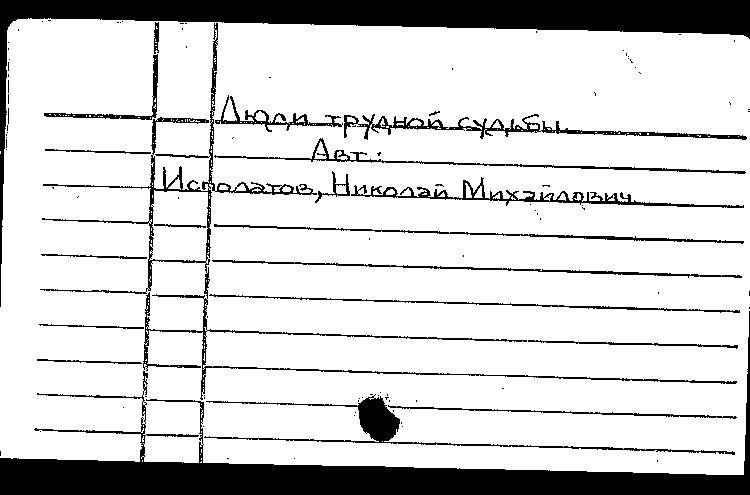 Люди трудной судьбы.
Авт.:
Исполатов, Николай Михайлович.